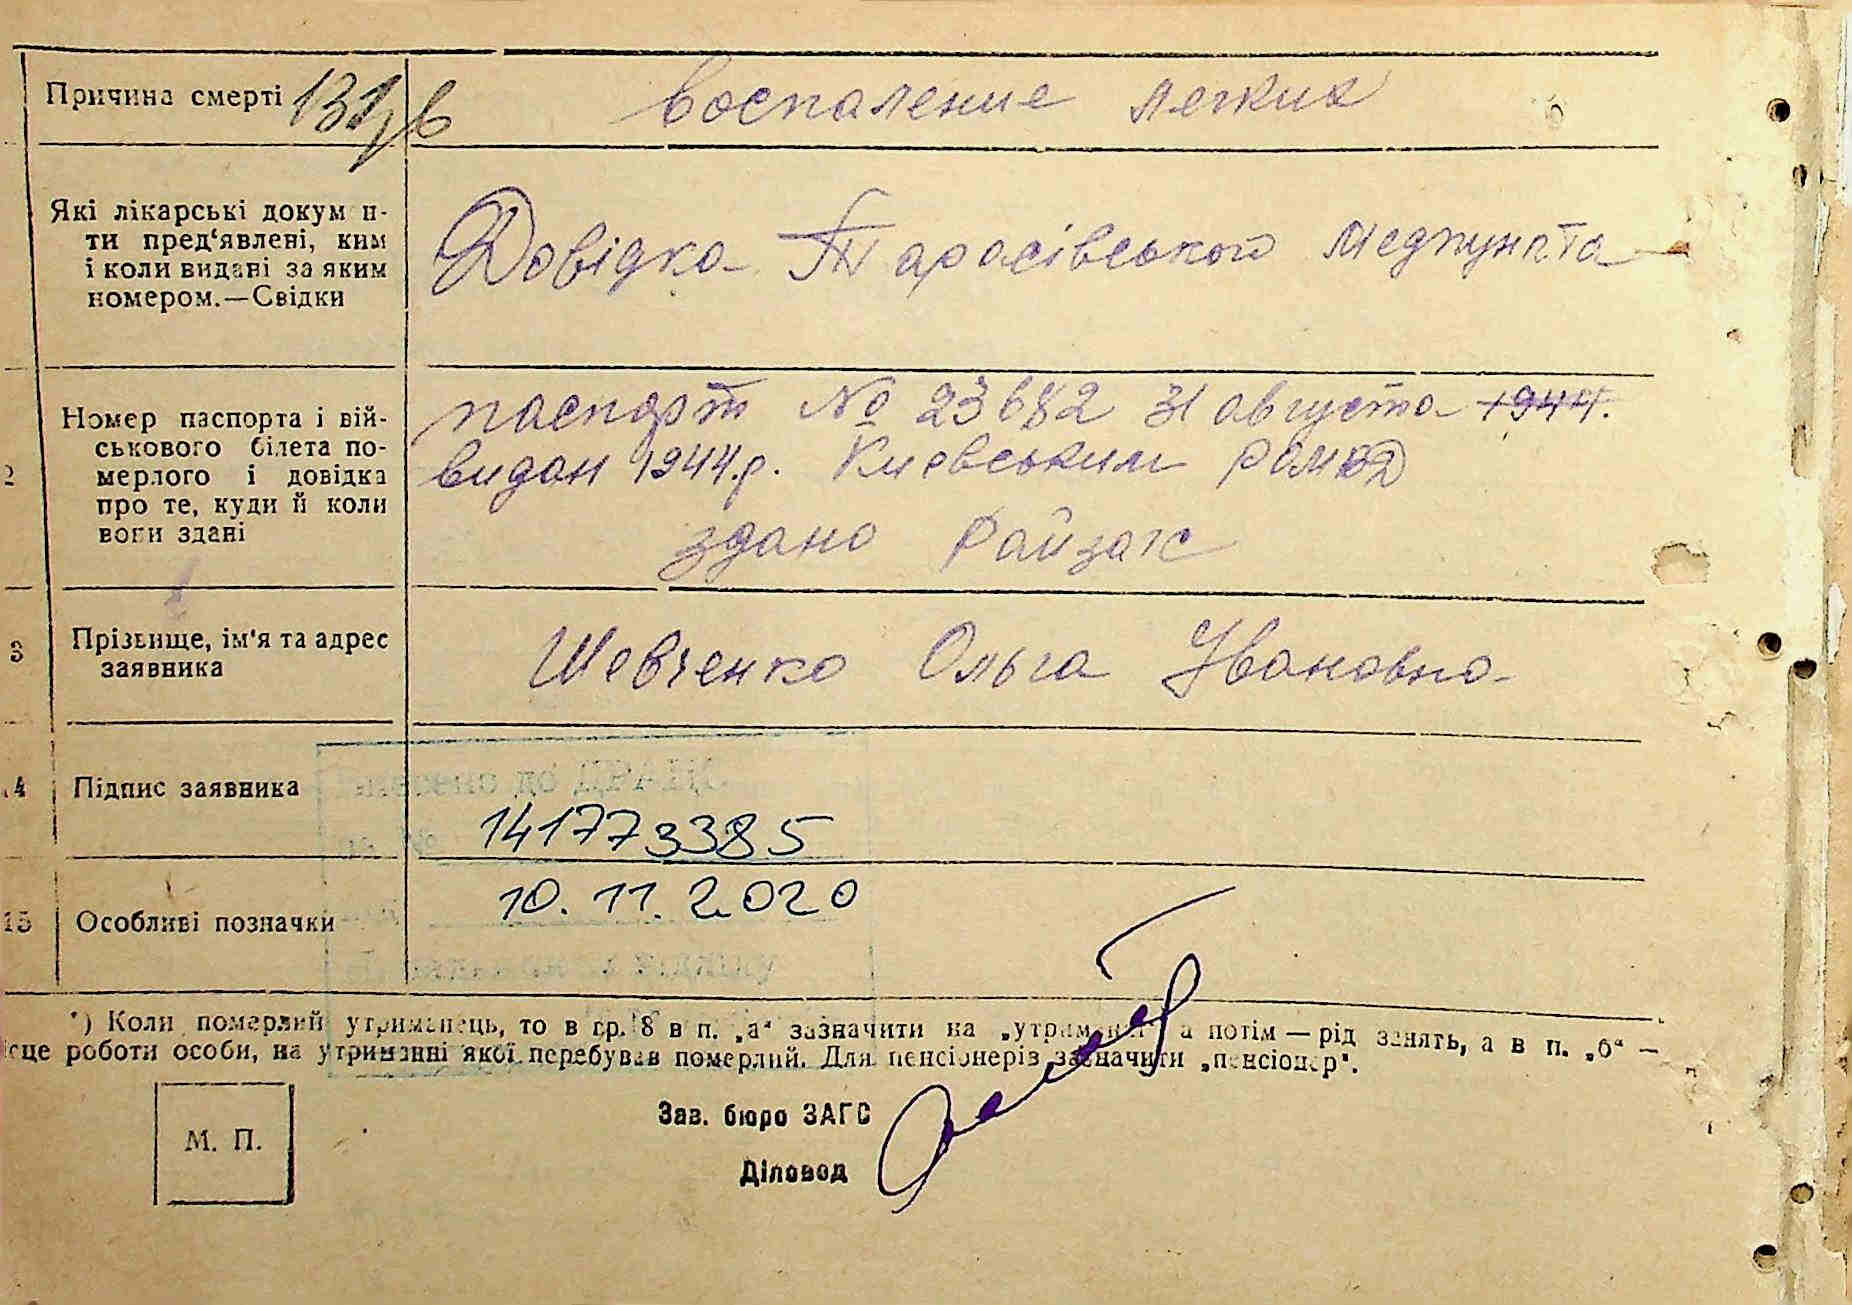 Причина смерті
воспаление легких
Які лікарські докум н-
ти пред'явлені, ким
і коли видані за яким
номером.—Свідки
Довідка Тарасівського медпункта
Номер паспорта і вій-
ськового білета по-
мерлого і довідка
про те, куди й коли
воги здані
паспорт № 23682 31 августа 1944.
видан 1944 р. Киевським
здано Райзагс
3 Прізвище, ім'я та адрес
заявника
Шевченко Ольга Ивановна
4 Підпис заявника
141773385
15 Особливі позначки
10.11.2020
*) Коли померлий утриманець, то в гр. 8 в п. „а“ зазначити на „утриманні“ а потім — рід занять, а в п. „б“ —
ісце роботи особи, на утриманні якої перебував померлий. Для пенсіонерів зазначити „пенсіонер“.
М. П.
Зав. бюро ЗАГС
Діловод